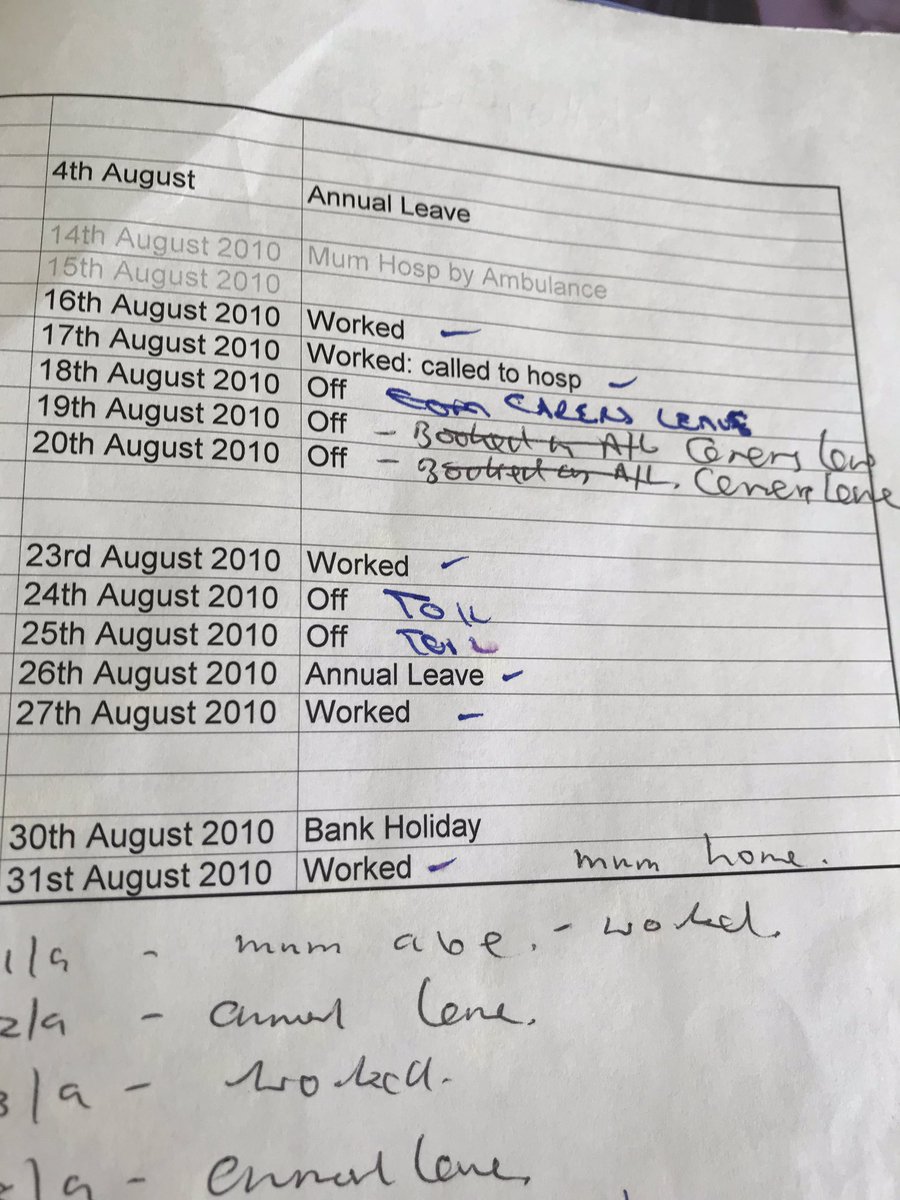 4th August Annual Leave
14th August 2010 Mum Hosp by Ambulance
15th August 2010
16th August 2010 Worked
17th August 2010 Worked: called to hosp
18th August 2010 Off CARERS LEAVE
19th August 2010 Off - Booked as A/L Carers Leave
20th August 2010 Off - Booked as A/L. Carers Leave
23rd August 2010 Worked
24th August 2010 Off TOIL
25th August 2010 Off TOIL
26th August 2010 Annual Leave
27th August 2010 Worked
30th August 2010 Bank Holiday
31st August 2010 Worked mum home.
1/9 - mum - worked.
2/9 - annual leave.
3/9 - worked.
/9 - annual leave.